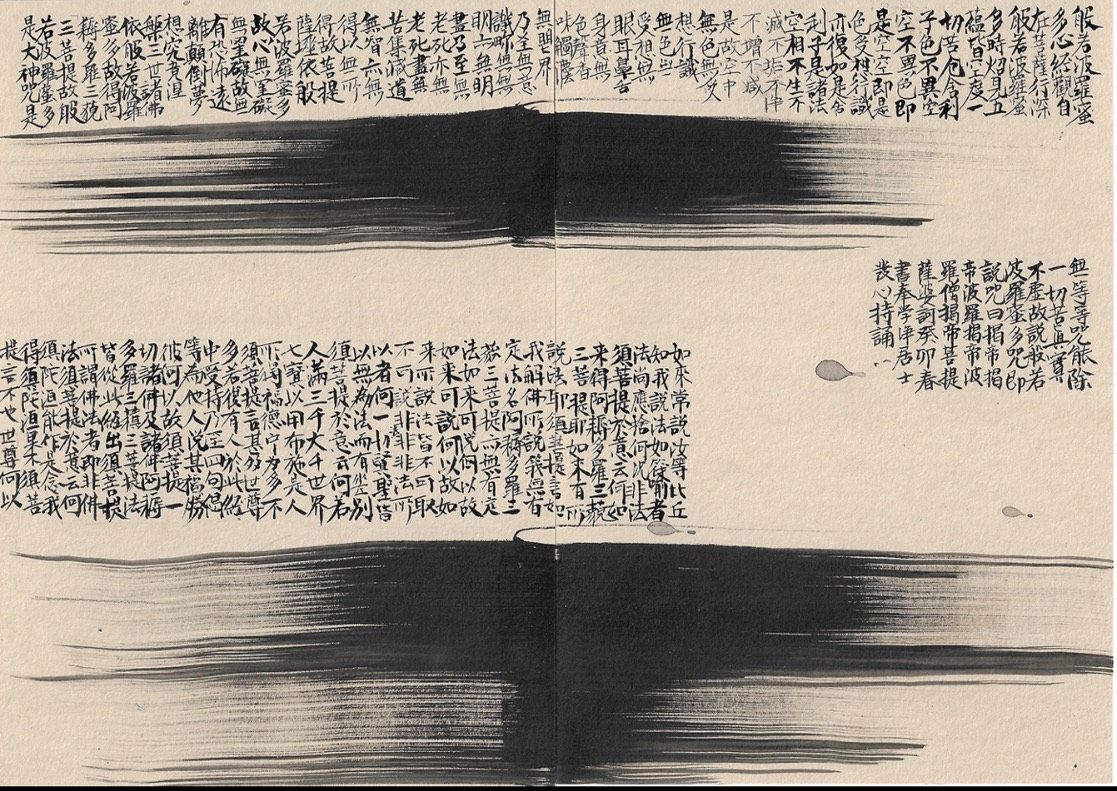 般若波羅蜜
多心經觀自
在菩薩行深
般若波羅蜜
多時炤見五
蘊皆空度一
切苦厄舍利
子色不異空
空不異色即
是空空即是
色受想行識
亦復如是舍
利子是諸法
空相不生不
滅不垢不淨
不增不減
是故空中
無色無受
想行識
無色無
受想無
眼耳鼻舌
身意無
色聲香
味觸法
無眼界
乃至無意
識界無
明亦無明
盡乃至無
老死亦無
老死盡無
苦集滅道
無智亦無
得以無所
得故菩提
薩埵依般
若波羅蜜多
故心無罣礙
無罣礙故無
有恐怖遠
離顛倒夢
想究竟涅
槃三世諸佛
依般若波羅
蜜多故得阿
耨多羅三藐
三菩提故般
若波羅蜜多
是大神咒是
無等等咒能除
一切苦真實
不虛故說般若
波羅蜜多咒即
說咒曰揭帝揭
帝波羅揭帝波
羅僧揭帝菩提
薩婆訶癸卯春
書奉學津居士
喪心持誦
如來常說汝等比丘
知我說法如筏喻者
法尚應捨何況非法
須菩提於意云何如
來得阿耨多羅三藐
三菩提耶如來有所
說法耶須菩提言如
我解佛所說義無有
定法名阿耨多羅三
藐三菩提亦無有定
法如來可說何以故
如來可說何以故如
來所說法皆不可取
不可說非法非非法所
以者何一切賢聖皆
以無為法而有差別
須菩提於意云何若
人滿三千大千世界
七寶以用布施是人
所得福德寧為多不
須菩提言甚多世尊
多若復有人於此經
中受持乃至四句偈
等為他人說其福勝
彼何以故須菩提一
切諸佛及諸佛阿耨
多羅三藐三菩提法
皆從此經出須菩提
所謂佛法者即非佛
法須菩提於意云何
須陀洹能作是念我
得須陀洹果不須菩
提言不也世尊何以